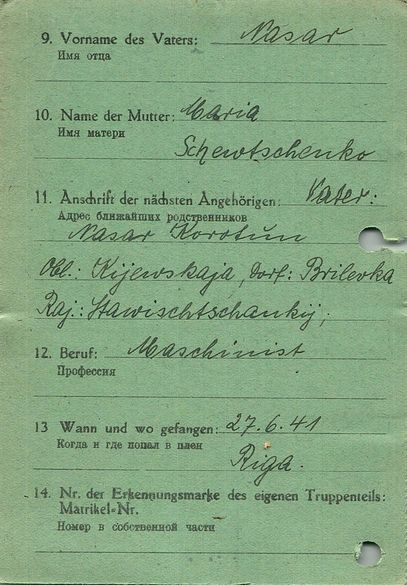 9. Vorname des Vaters: Nasar
Имя отца
10. Name der Mutter: Maria
Имя матери
Schewtschenko
11. Anschrift der nächsten Angehörigen: Vater:
Адрес ближайших родственников
Nasar Korotun
Obl.: Kijewskaja, Dorf: Brilevka
Raj.: Stawischtschankij;
12. Beruf: Maschinist
Профессия
13 Wann und wo gefangen: 27.6.41
Когда и где попал в плен
Riga.
14. Nr. der Erkennungsmarke des eigenen Truppenteils:
Matrikel-Nr.
Номер в собственной части